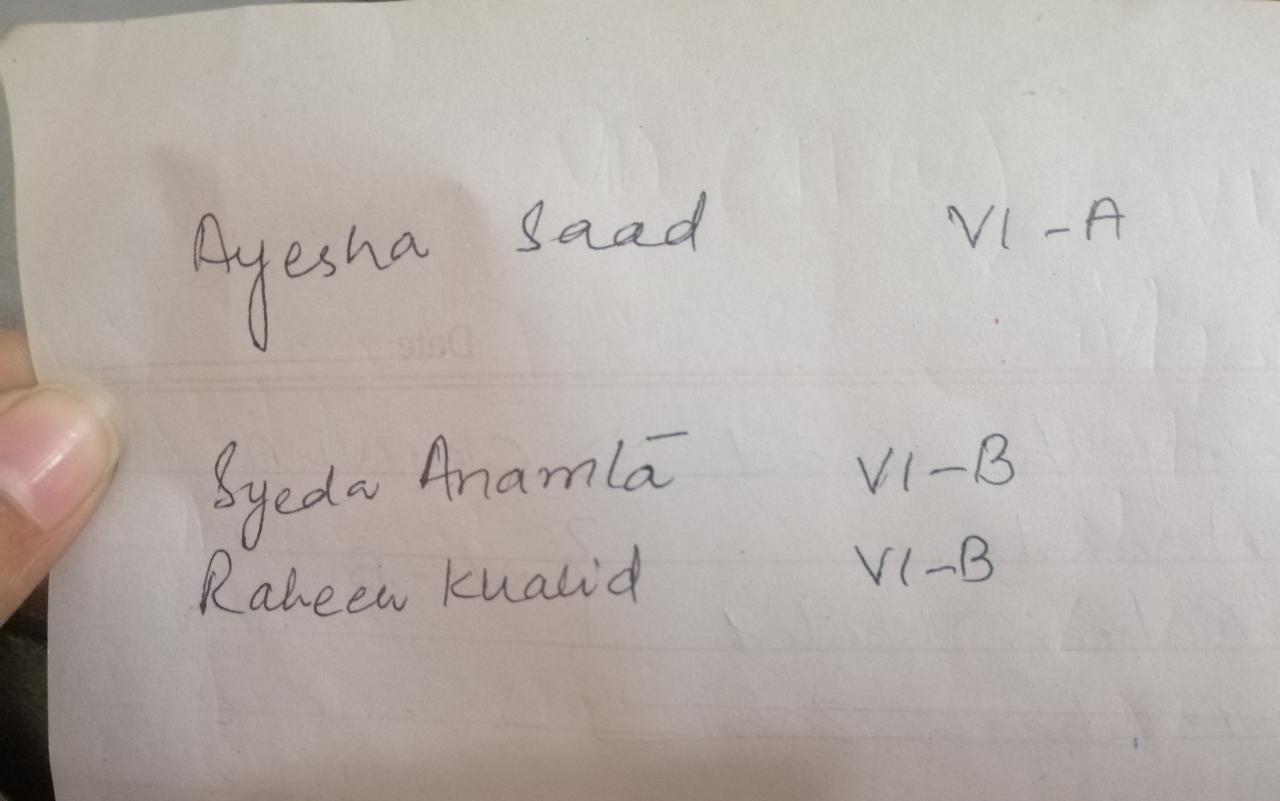 Ayesha Saad VI-A
Date:
Syeda Anamta VI-B
Raheen Khalid VI-B